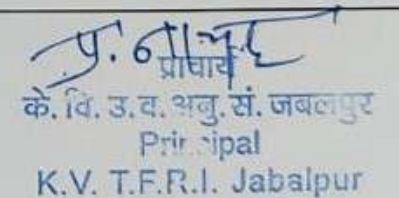 प्राचार्य
के. वि. उ. व. अनु. सं. जबलपुर
Principal
K.V. T.F.R.I. Jabalpur